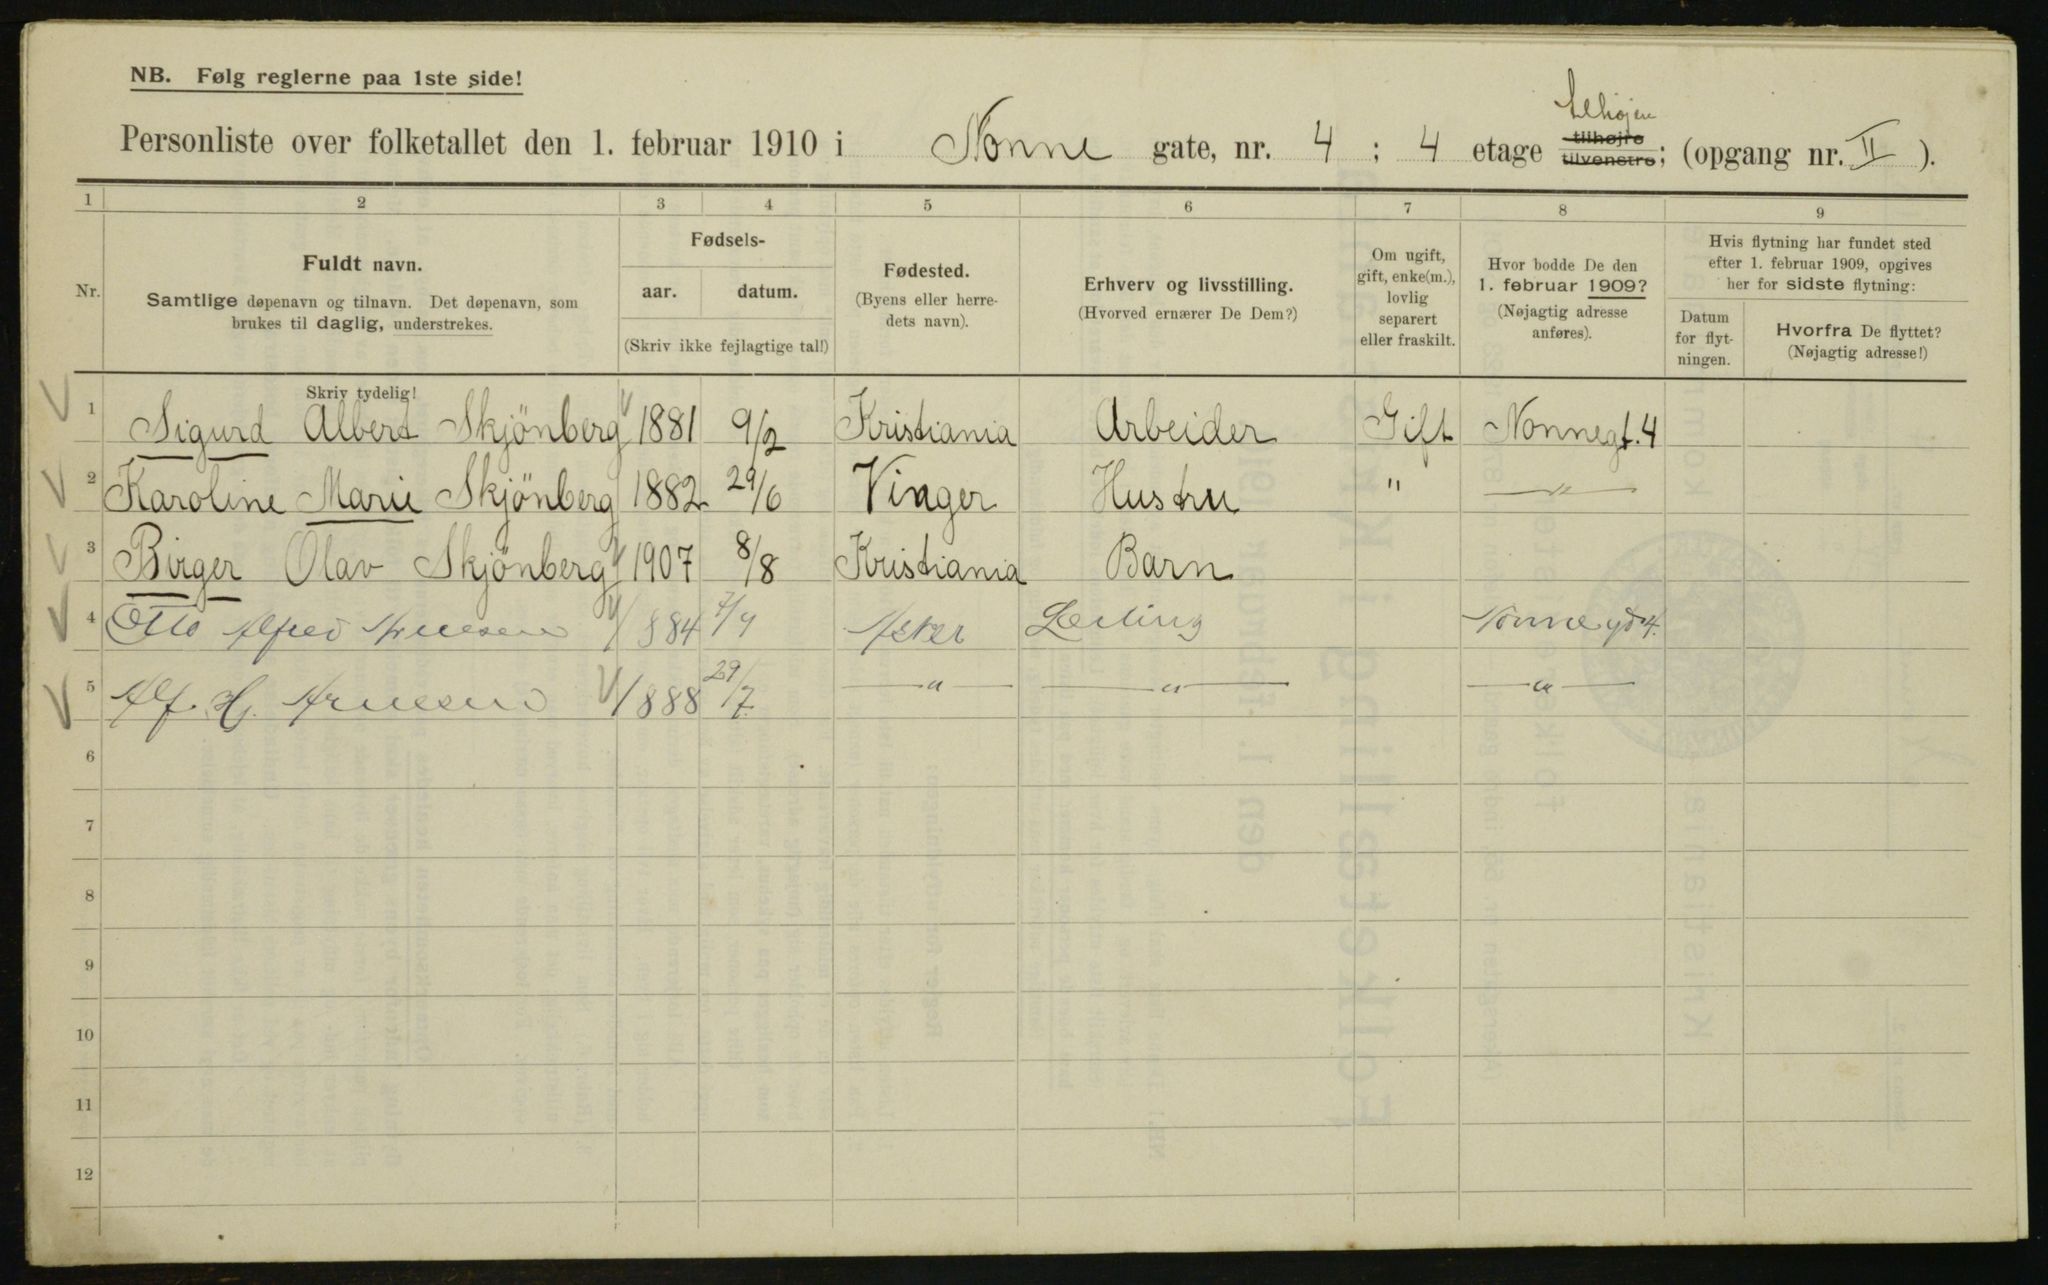 NB. Følg reglerne paa 1ste side!
Personliste over folketallet den 1. februar 1910 i Nonne gate, nr. 4 ; 4 etage tilhøjre tilvenstre; (opgang nr. II ).
1 2 3 4 5 6 7 8 9
Nr.
Fuldt navn.
Samtlige døpenavn og tilnavn. Det døpenavn, som
brukes til daglig, understrekes.
Fødsels-
aar. datum.
(Skriv ikke fejlagtige tal!)
Fødested.
(Byens eller herre-
dets navn).
Erhverv og livsstilling.
(Hvorved ernærer De Dem?)
Om ugift,
gift, enke(m.),
lovlig
separert
eller fraskilt.
Hvor bodde De den
1. februar 1909?
(Nøjagtig adresse
anføres).
Hvis flytning har fundet sted
efter 1. februar 1909, opgives
her for sidste flytning:
Datum
for flyt-
ningen.
Hvorfra De flyttet?
(Nøjagtig adresse!)
Skriv tydelig!
1 Sigurd Albert Skjönberg 1881 9/2 Kristiania Arbeider Gift Nonnegt. 4
2 Karoline Marie Skjönberg 1882 29/6 Vinger Hustru " —"—
3 Birger Olav Skjönberg 1907 8/8 Kristiania Barn
4 Otto Alfred Arnesen 1884 Asker
5 Alf. H. Arnesen 1888 29/7 —"— —"— —"—
6
7
8
9
10
11
12